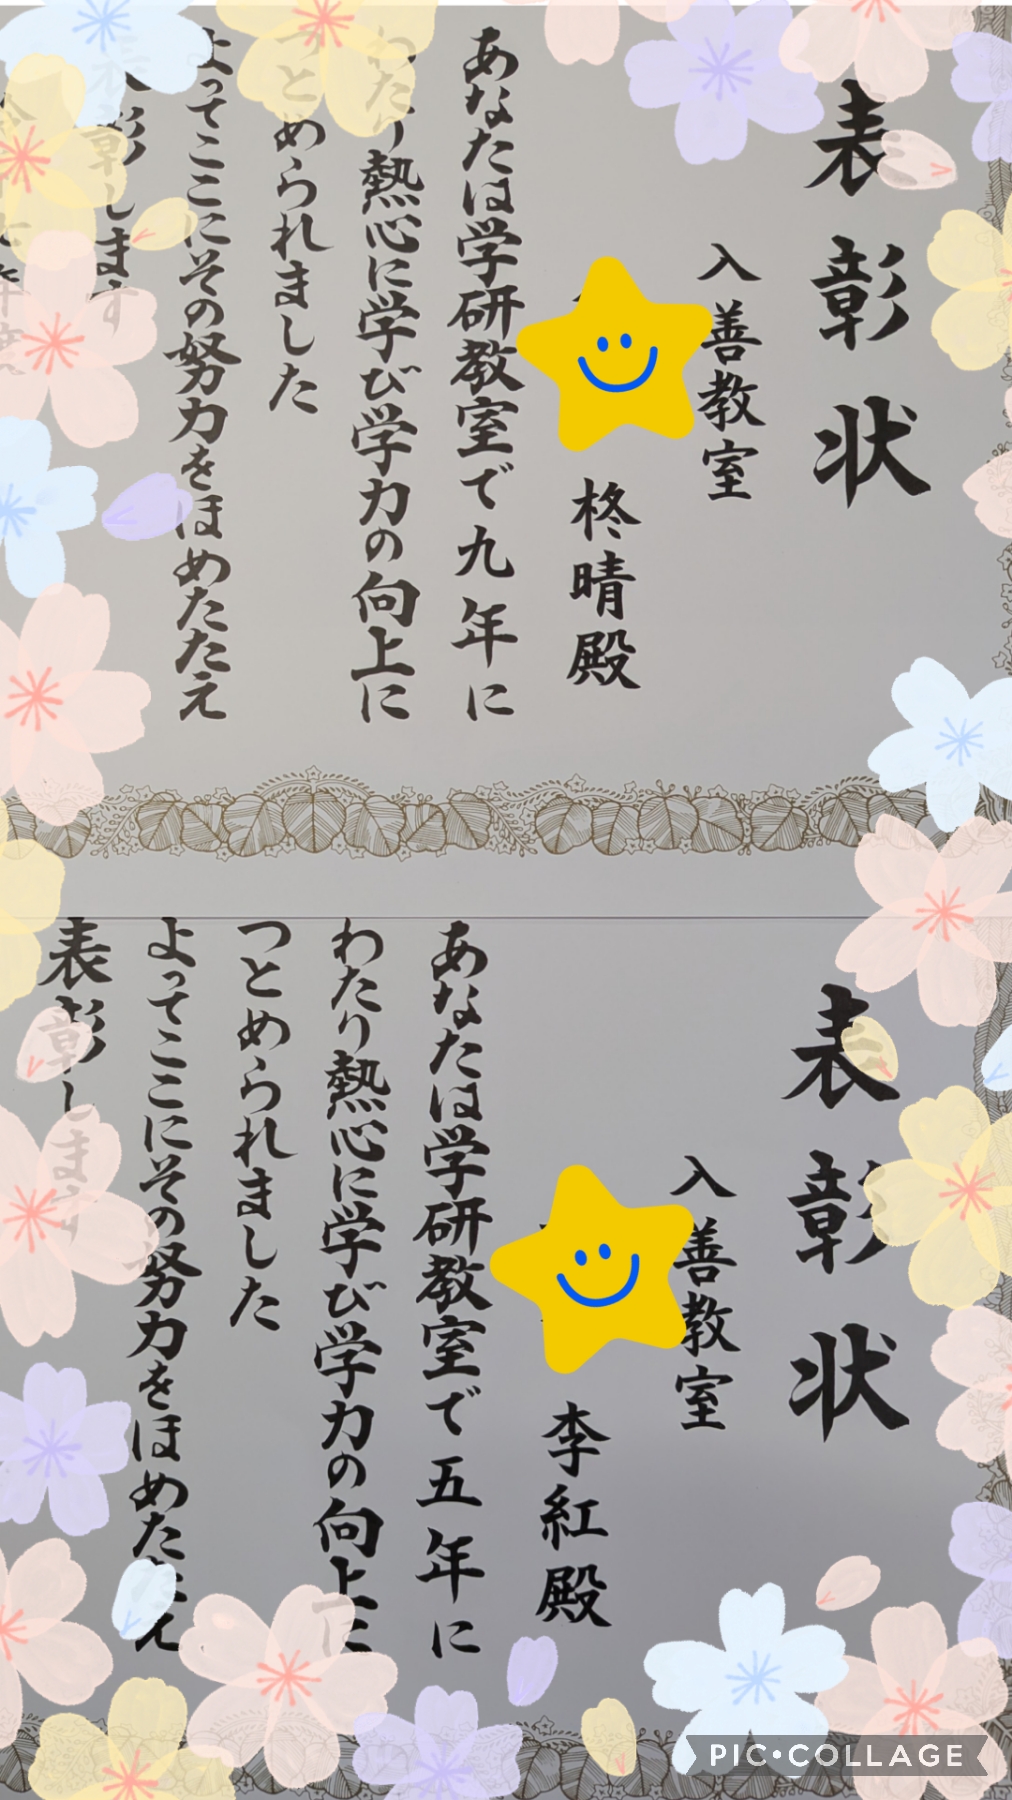 表彰状
入善教室
柊晴殿
あなたは学研教室で九年に
わたり熱心に学び学力の向上に
つとめられました
よってここにその努力をほめたたえ
表彰します
表彰状
入善教室
李紅殿
あなたは学研教室で五年に
わたり熱心に学び学力の向上に
つとめられました
よってここにその努力をほめたたえ
表彰します
PIC•COLLAGE